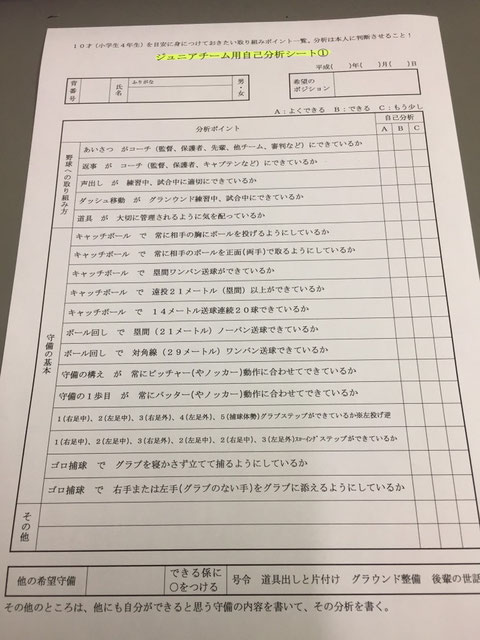 10才（小学生4年生）を目安に身につけておきたい取り組みポイント一覧。分析は本人に判断させること！
ジュニアチーム用自己分析シート①
平成（　）年（　）月（　）日
背番号
ふりがな
氏名
男・女
希望のポジション
A：よくできる　B：できる　C：もう少し
分析ポイント
自己分析
A B C
野球への取り組み方
あいさつ　が　コーチ（監督、保護者、先輩、他チーム、審判など）にできているか
返事　が　コーチ（監督、保護者、キャプテンなど）にできているか
声出し　が　練習中、試合中に適切にできているか
ダッシュ移動　が　グランウンド練習中、試合中にできているか
道具　が　大切に管理されるように気を配っているか
守備の基本
キャッチボール　で　常に相手の胸にボールを投げるようにしているか
キャッチボール　で　常に相手のボールを正面(両手)で取るようにしているか
キャッチボール　で　塁間ワンバン送球ができているか
キャッチボール　で　遠投21メートル（塁間）以上ができているか
キャッチボール　で　14メートル送球連続20球できているか
ボール回し　で　塁間（21メートル）ノーバン送球できているか
ボール回し　で　対角線（29メートル）ワンバン送球できているか
守備の構え　が　常にピッチャー(やノッカー)動作に合わせてできているか
守備の1歩目　が　常にバッター(やノッカー)動作に合わせてできているか
1(右足中)、2(左足中)、3(右足外)、4(左足外)、5(捕球体勢)グラブステップができているか※左投げ逆
1(右足中)、2(左足中)、3(右足外)、1(右足中)、2(左足中)、3(左足外)スローイングステップができているか
ゴロ捕球　で　グラブを寝かさず立てて捕るようにしているか
ゴロ捕球　で　右手または左手(グラブのない手)をグラブに添えるようにしているか
その他
他の希望守備
できる係に○をつける
号令　道具出しと片付け　グラウンド整備　後輩の世話
その他のところは、他にも自分ができると思う守備の内容を書いて、その分析を書く。